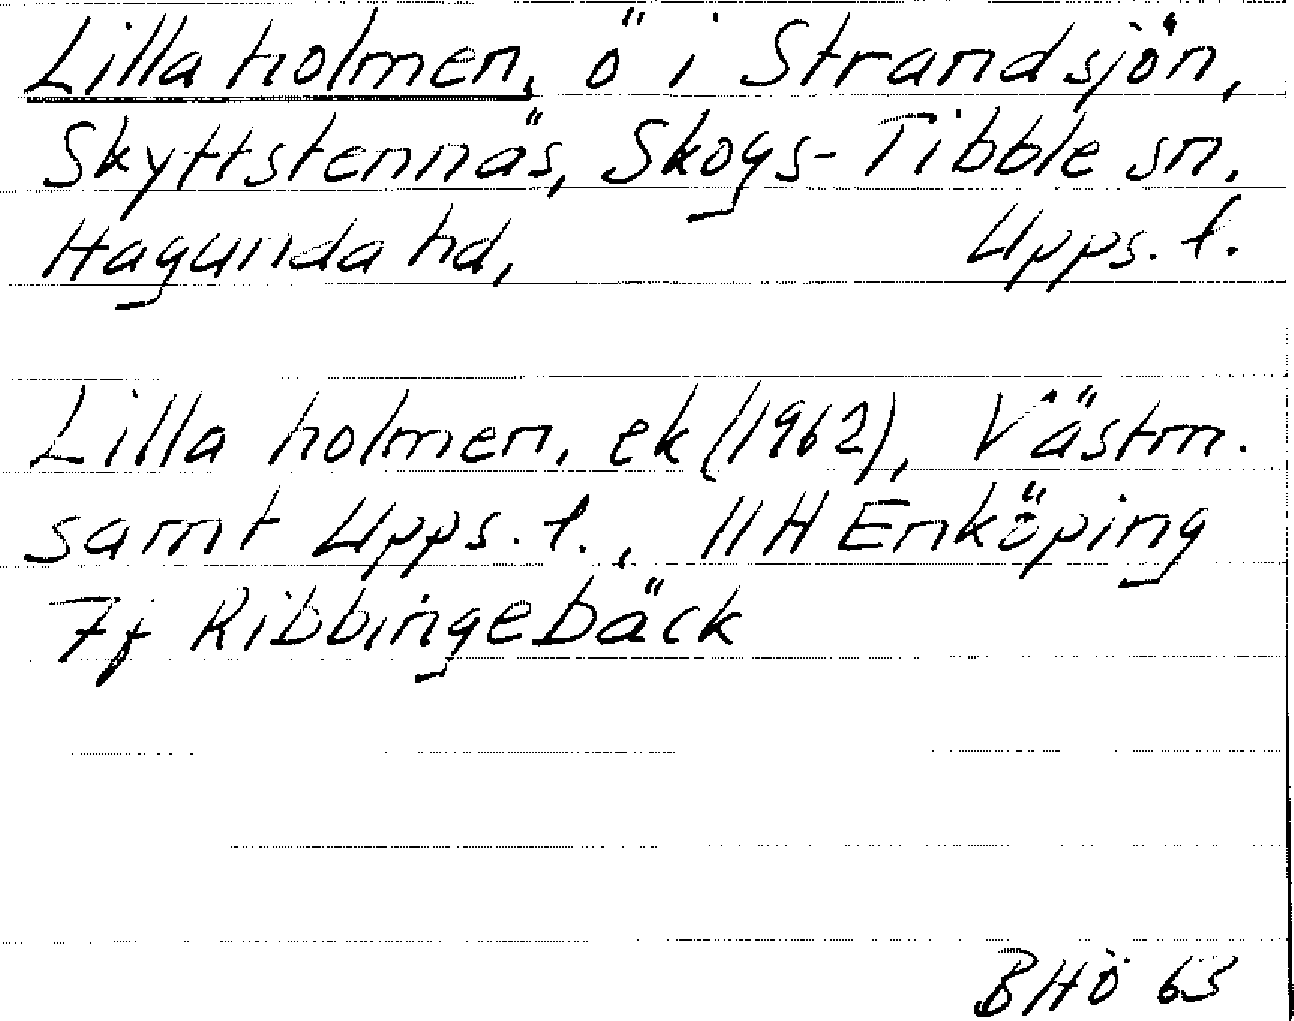 Lilla holmen, ö i Strandsjön,
Skyttstennäs, Skogs-Tibble sn.
Hagunda hd, Upps. l.
Lilla holmen, ek (1962), Västm.
samt Upps. l., 11H Enköping
7f Ribbingebäck
BHÖ 63